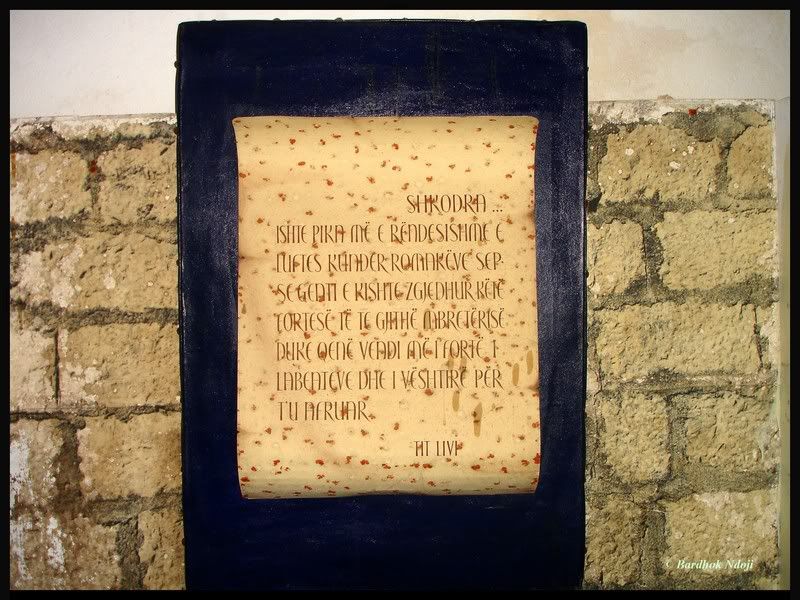 SHKODRA ...
ISHTE PIKA MË E RËNDESISHME E
LUFTES KUNDËR ROMAKËVE SEP-
SE GENTI E KISHTE ZGJEDHUR KËTË
FORTESË TË TE GJITHË MBRETËRISË
DUKE QENË VENDI MË I FORTË I
LABEATEVE DHE I VËSHTIRË PËR
T'U AFRUAR.
TIT LIVI
© Bardhok Ndoji